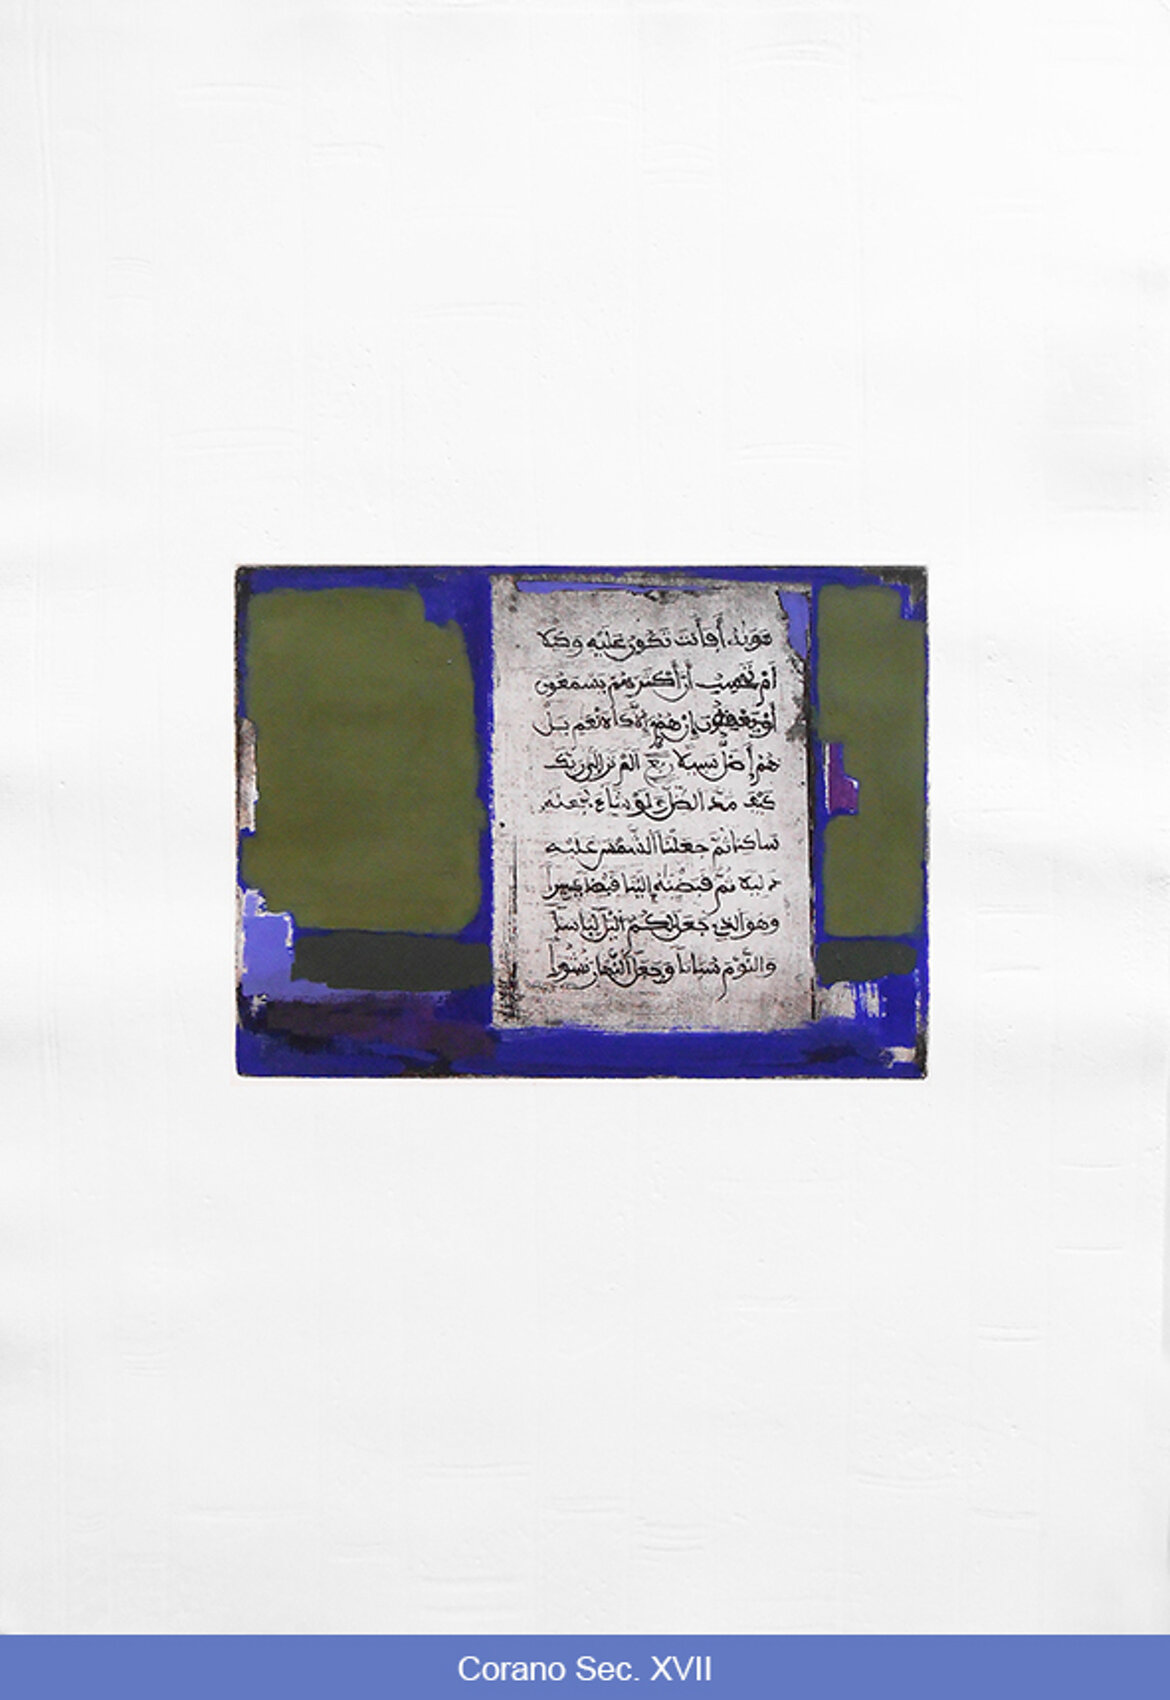 هويه أفأنت تكون عليه وكلا
أم تحسب أن أكثرهم يسمعون
أو يعقلون إن هم إلا كالأنعم بل
هم أضل سبيلا ربع ألم تر إلى ربك
كيف مد الظل ولو شاء لجعله
ساكنا ثم جعلنا الشمس عليه
دليلا ثم قبضنه إلينا قبضا يسيرا
وهو الذي جعل لكم اليل لباسا
والنوم سباتا وجعل النهار نشورا
Corano Sec. XVII